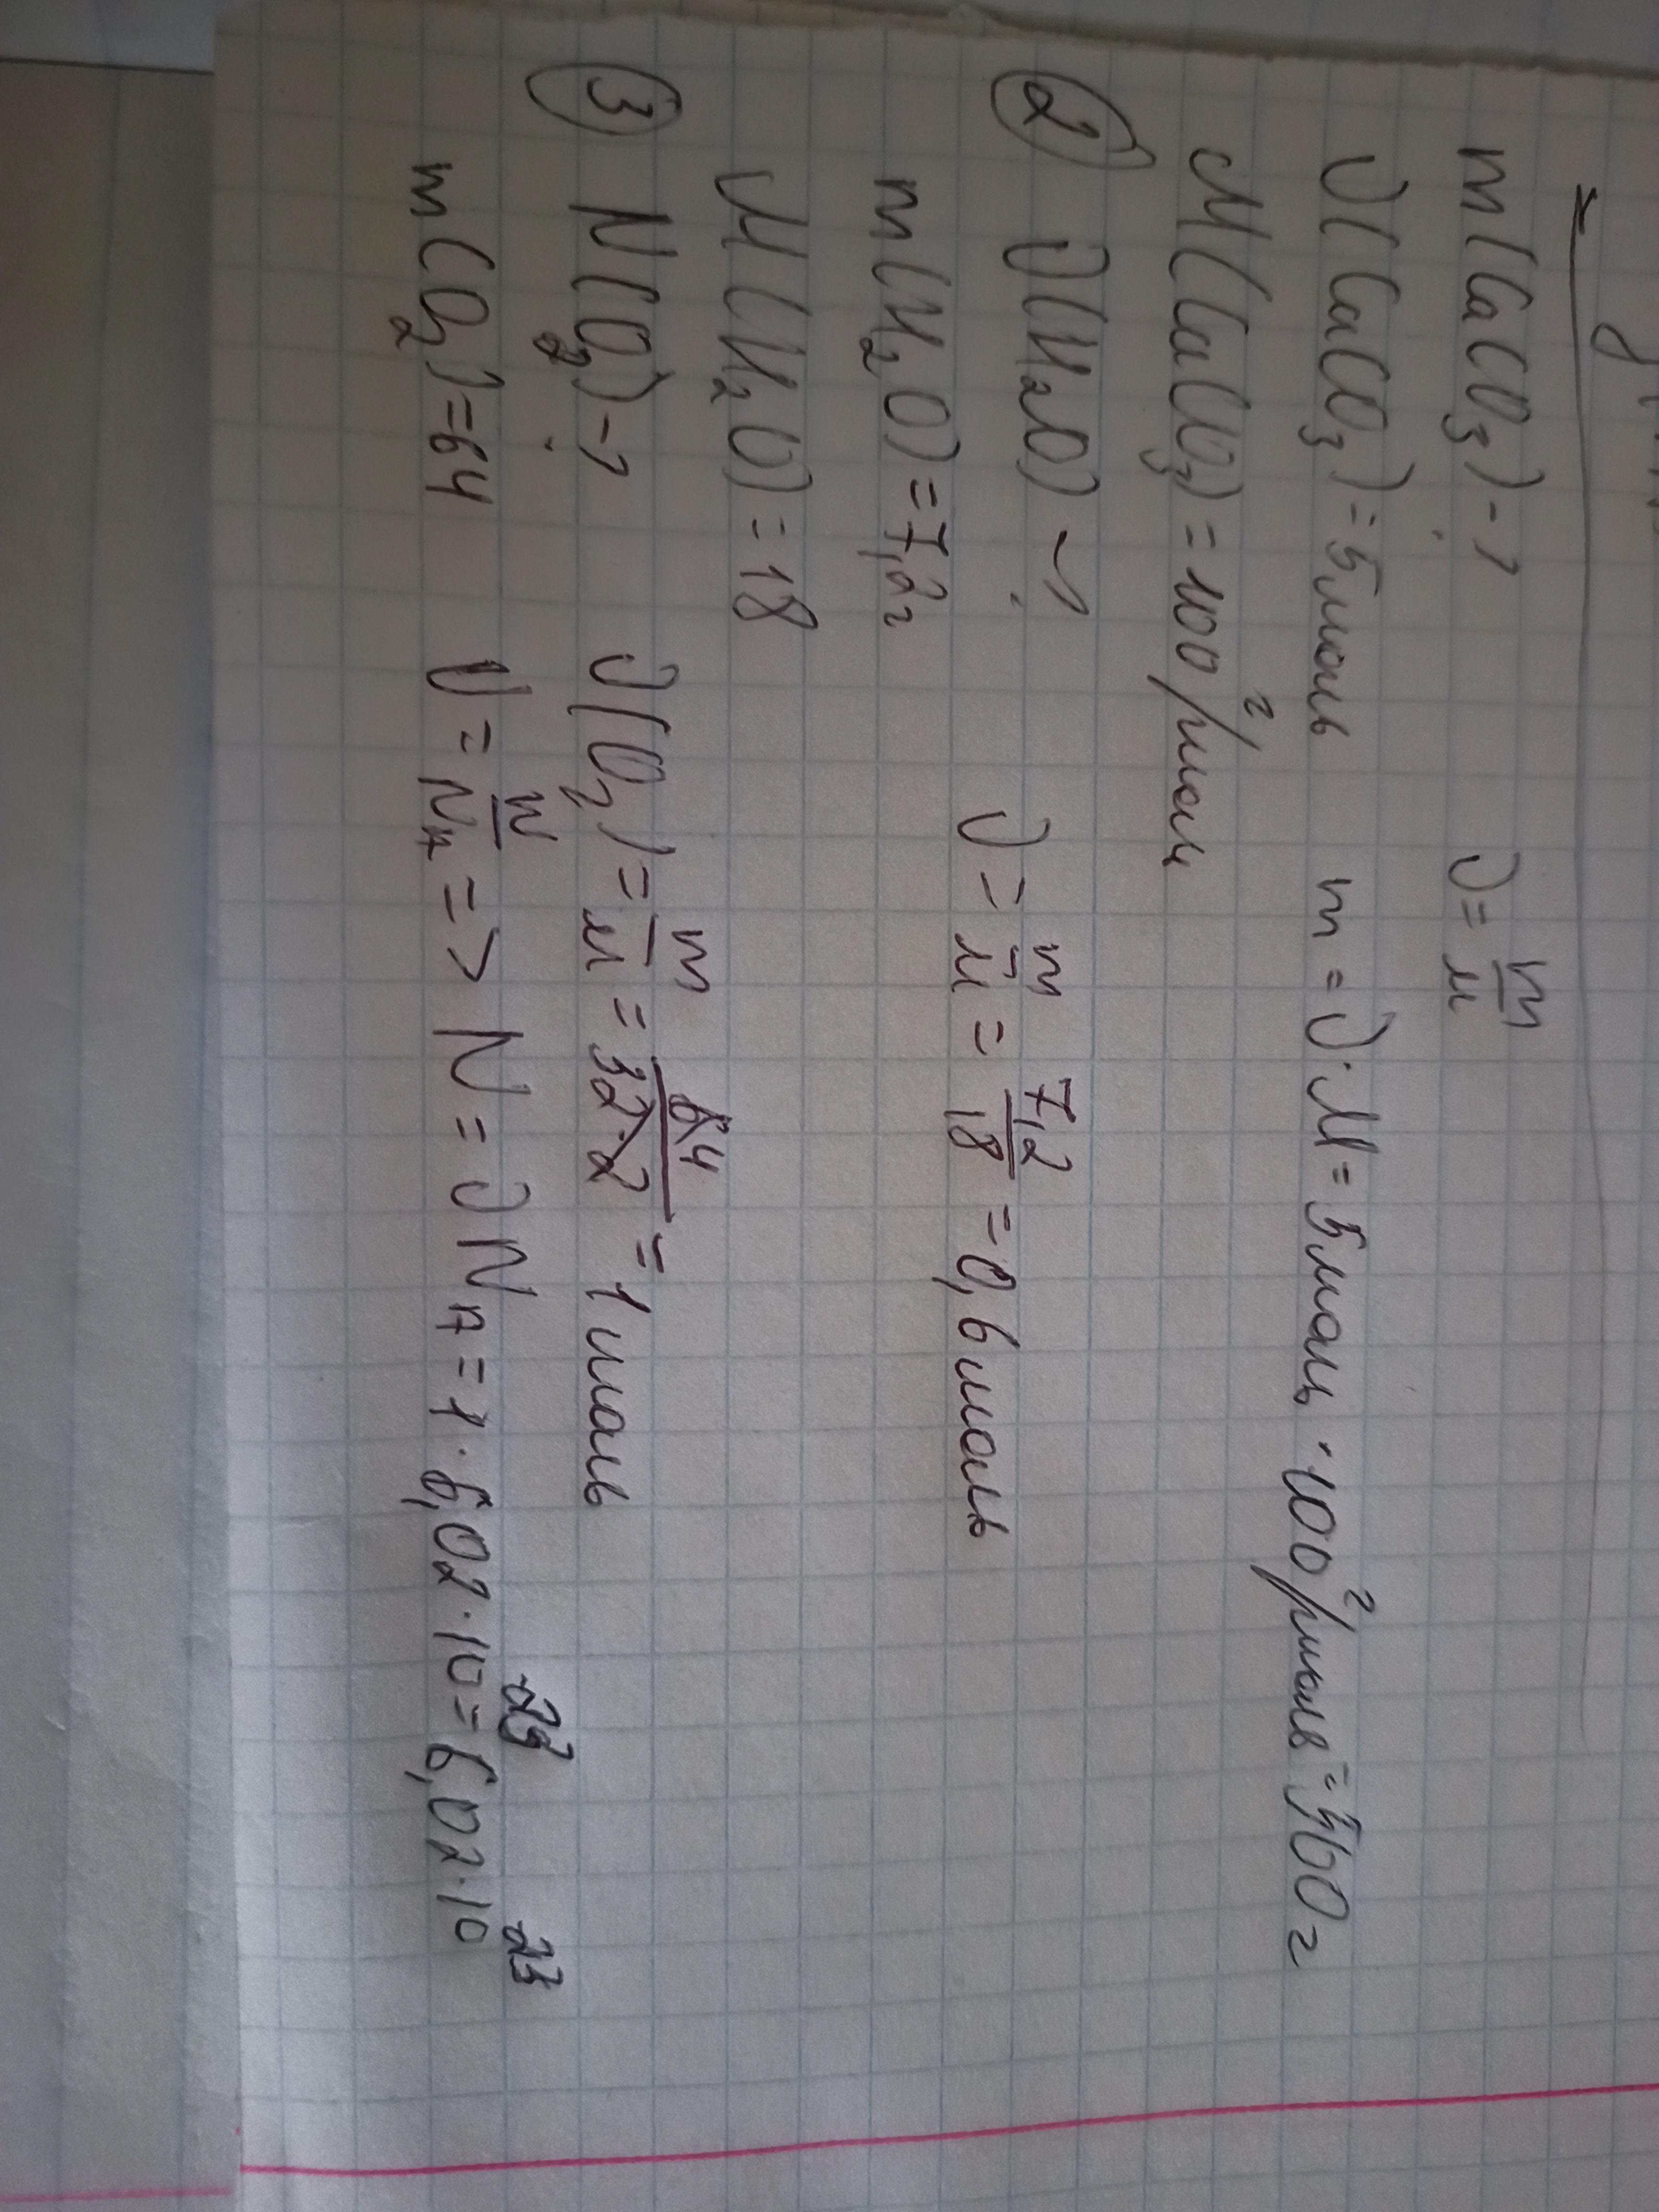 m(CaCO₃) - ? ν = m/M
ν(CaCO₃) = 5моль m = ν·M = 5моль · 100 г/моль = 500 г
M(CaCO₃) = 100 г/моль
② ν(H₂O) - ?
m(H₂O) = 7,2г ν = m/M = 7,2/18 = 0,6моль
M(H₂O) = 18
③ N(O₂) - ? ν(O₂) = m/M = 64/32·2 = 1 моль
m(O₂) = 64 ν = N/Nᴀ => N = νNᴀ = 1 · 6,02 · 10²³ = 6,02 · 10²³